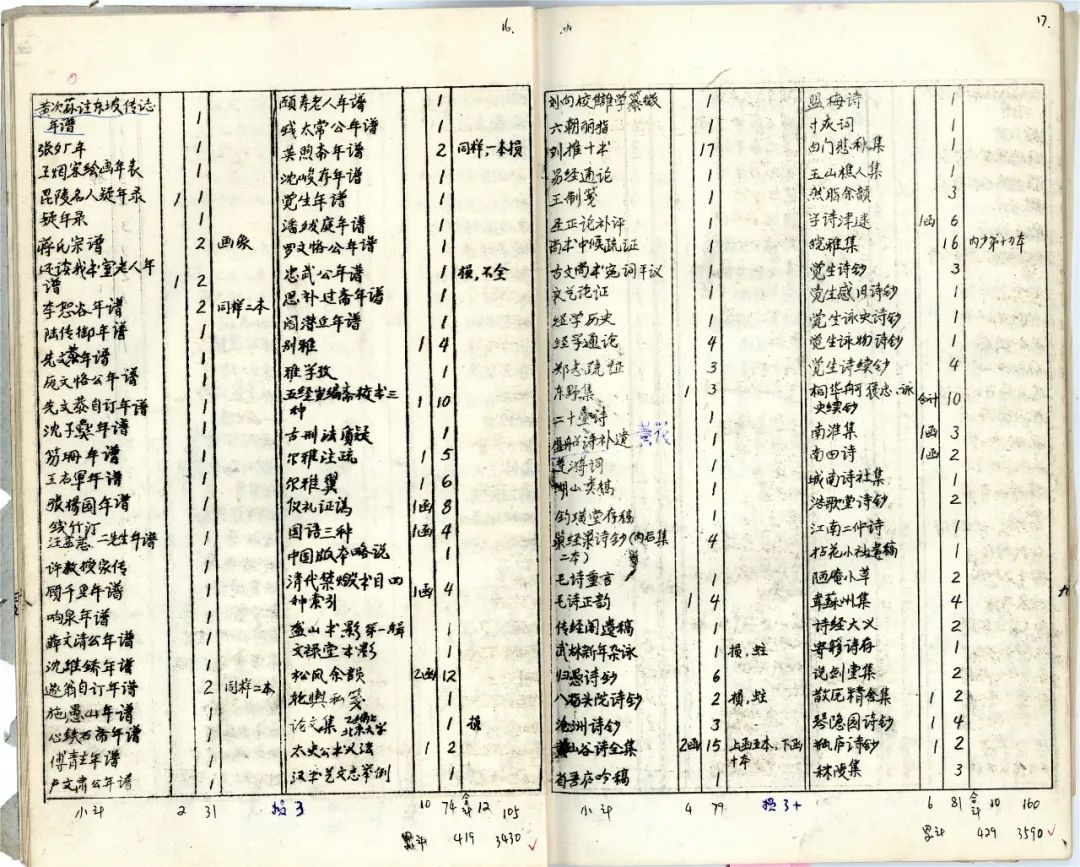 16.
黄次荪注东坡传志
年谱 1
张夕厂年 1
王烟客绘画年表 1
毘陵名人疑年录 1 1
疑年录 1
蒋氏宗谱 2 画象
还读我书室老人年
谱 1 2
李恕谷年谱 2 同样二本
陆侍御年谱 1
先文恭年谱 1
厐文恪公年谱 1
先文恭自订年谱 1
沈子 年谱 1
年谱 1
王右军年谱 1
张杨园年谱 1
钱竹汀
二先生年谱 1
许教授家传 1
顾千里年谱 1
响泉年谱 1
薛文清公年谱 1
沈 年谱 1
遂翁自订年谱 2 同样二本
施愚山年谱 1
心铁石斋年谱 1
傅青主年谱 1
卢文肃公年谱 1
小计 2 31 损3
颐寿老人年谱 1
钱太常公年谱 1
英煦斋年谱 2 同样,一本损
沈岐存年谱 1
觉生年谱 1
潘绂庭年谱 1
罗文恪公年谱 1
忠武公年谱 1 损,不全
思补过斋年谱 1
阎潜丘年谱 1
别雅 1 4
雅学考 1
五经 斋校书三
种 1 10
古刑法质疑 1
尔雅注疏 1 5
尔雅翼 1 6
仪礼证讹 1函 8
国语三种 1函 4
中国版本略说 1
清代禁燬书目四
种索引 1函 4
盋山书影第一辑 1
文禄堂书影 1
松风余韻 2函 12
乾舆私笺 1
论文集 北京大学 1 损
太史公书义法 1 2
汉书艺文志举例 1
10 74 合计12 105
累计 419 3430
17.
刘向校雠学纂微 1
六朝丽指 1
刘推十书 17
易经通论 1
王制笺 1
圣证论补评 1
尚书中候疏证 1
古文尚书冤词平议 1
六艺论证 1
经学历史 1
经学通论 4
郑志疏证 3
东野集 1 3
二十 诗 1
诗补遗 1
词 1
湖山类稿 1
钓璜堂存稿 1
巢经巢诗钞(内后集
二本) 4
毛诗重言 1
毛诗正韵 1 4
传经阁遗稿 1
武林新年杂咏 1 损,蛀
归愚诗钞 6
八砖头院诗钞 2 损,蛀
沧洲诗钞 3
黄山谷诗全集 2函 15 上函五本,下函
十本
吟稿 1
小计 4 79 损3+
盟梅诗 1
忏庆词 1
白门悲秋集 1
玉山樵人集 1
然脂余韻 3
学诗津逮 1函 6
皖雅集 16 内少第十四本
觉生诗钞 3
觉生感旧诗钞 1
觉生咏史诗钞 1
觉生咏物诗钞 1
觉生诗续钞 4
桐华舸 褒忠、咏
史续钞 合计 10
南淮集 1函 3
南田诗 1函 2
城南诗社集 1
浩歌堂诗钞 2
江南二仲诗 1
拈花小社遗稿 1
陋庵小草 2
韋蘇州集 4
诗经大义 2
寄籍诗存 1
说剑堂集 2
散原精舍集 1 2
琴隐园诗钞 1 4
瓶庐诗钞 1 2
秣陵集 3
6 81 合计10 160
累计 429 3590